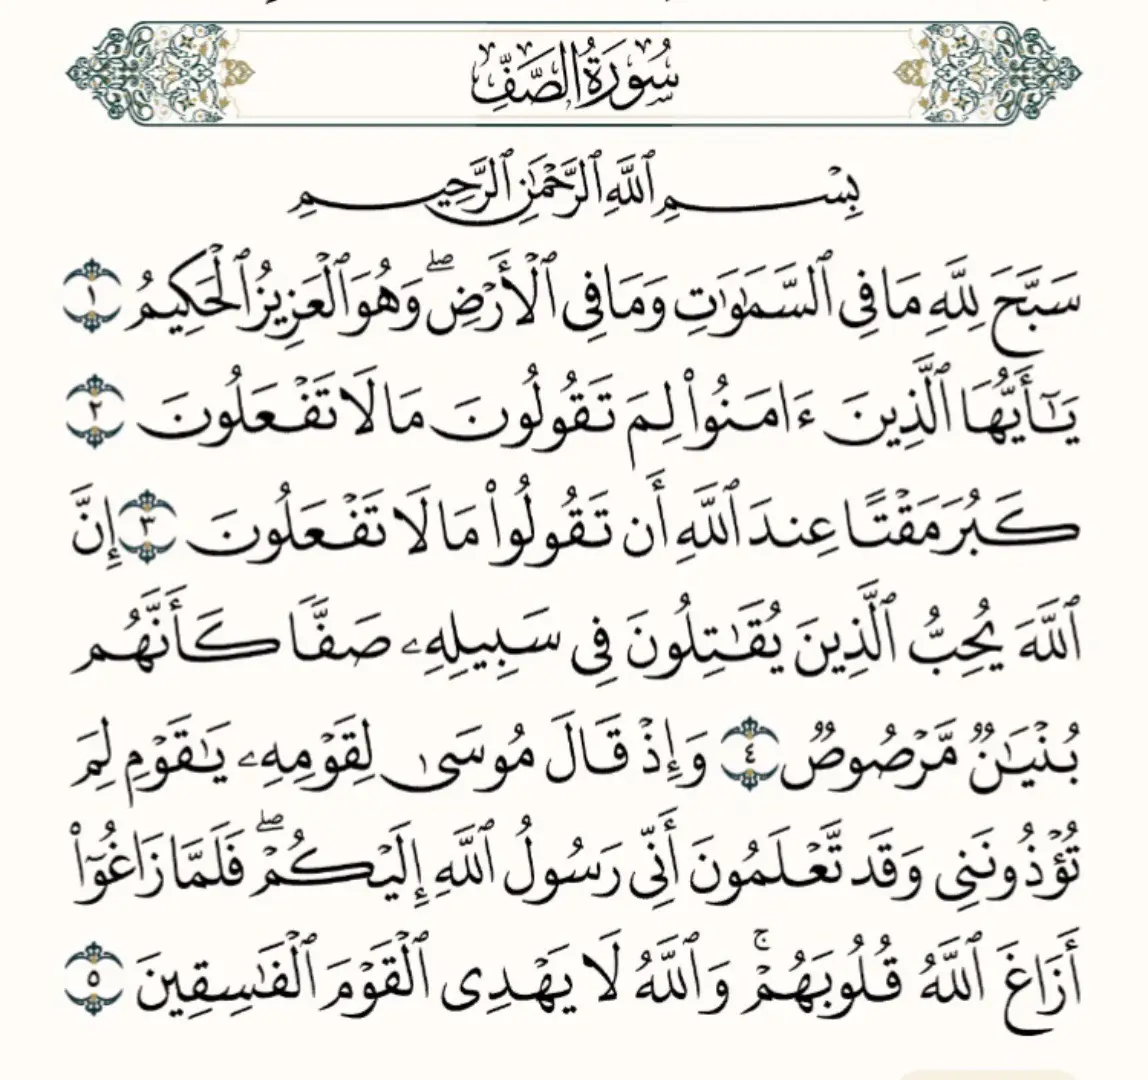 سُورَةُ الصَّفِّ
بِسْمِ ٱللَّهِ ٱلرَّحْمَٰنِ ٱلرَّحِيمِ
سَبَّحَ لِلَّهِ مَا فِي ٱلسَّمَٰوَٰتِ وَمَا فِي ٱلْأَرْضِۖ وَهُوَ ٱلْعَزِيزُ ٱلْحَكِيمُ ١
يَٰٓأَيُّهَا ٱلَّذِينَ ءَامَنُوا۟ لِمَ تَقُولُونَ مَا لَا تَفْعَلُونَ ٢
كَبُرَ مَقْتًا عِندَ ٱللَّهِ أَن تَقُولُوا۟ مَا لَا تَفْعَلُونَ ٣ إِنَّ
ٱللَّهَ يُحِبُّ ٱلَّذِينَ يُقَٰتِلُونَ فِي سَبِيلِهِۦ صَفًّا كَأَنَّهُم
بُنْيَٰنٌ مَّرْصُوصٌ ٤ وَإِذْ قَالَ مُوسَىٰ لِقَوْمِهِۦ يَٰقَوْمِ لِمَ
تُؤْذُونَنِي وَقَد تَّعْلَمُونَ أَنِّي رَسُولُ ٱللَّهِ إِلَيْكُمْۖ فَلَمَّا زَاغُوٓا۟
أَزَاغَ ٱللَّهُ قُلُوبَهُمْۚ وَٱللَّهُ لَا يَهْدِي ٱلْقَوْمَ ٱلْفَٰسِقِينَ ٥